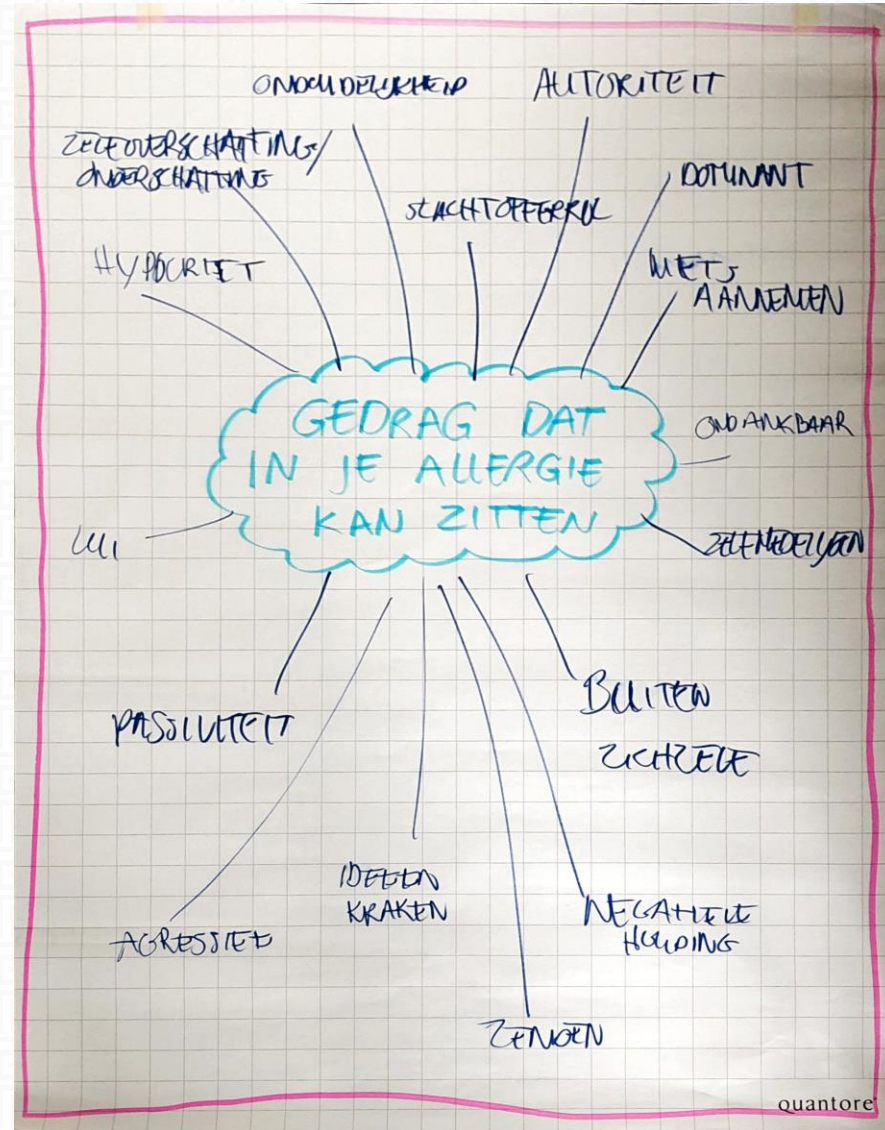 ONDUIDELIJKHEID
AUTORITEIT
ZELFOVERSCHATTING/
ONDERSCHATTING
DOMINANT
SLACHTOFFERROL
HYPOCRIET
NIETS
AANNEMEN
GEDRAG DAT
IN JE ALLERGIE
KAN ZITTEN
ONDANKBAAR
LUI
ZELFMEDELIJDEN
PASSIVITEIT
BUITEN
ZICHZELF
IDEEEN
KRAKEN
AGRESSIEF
NEGATIEVE
HOUDING
ZENDEN
quantore